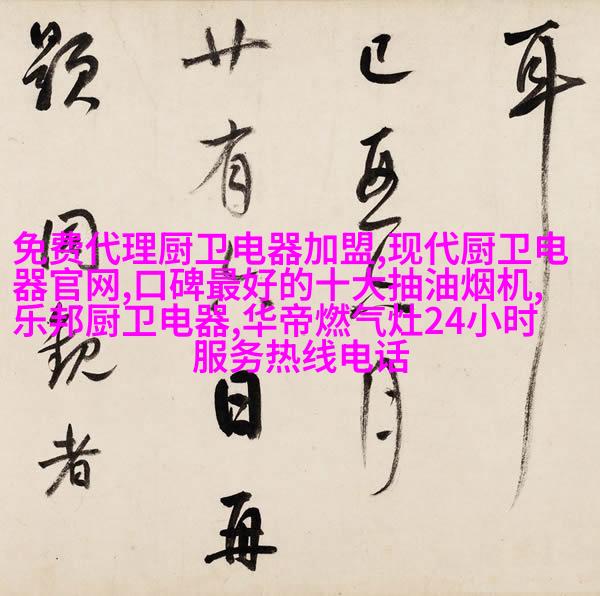 耳
己
月
廿有
日再
題同觀者
免费代理厨卫电器加盟,现代厨卫电
器官网,口碑最好的十大抽油烟机,
乐邦厨卫电器,华帝燃气灶24小时
服务热线电话